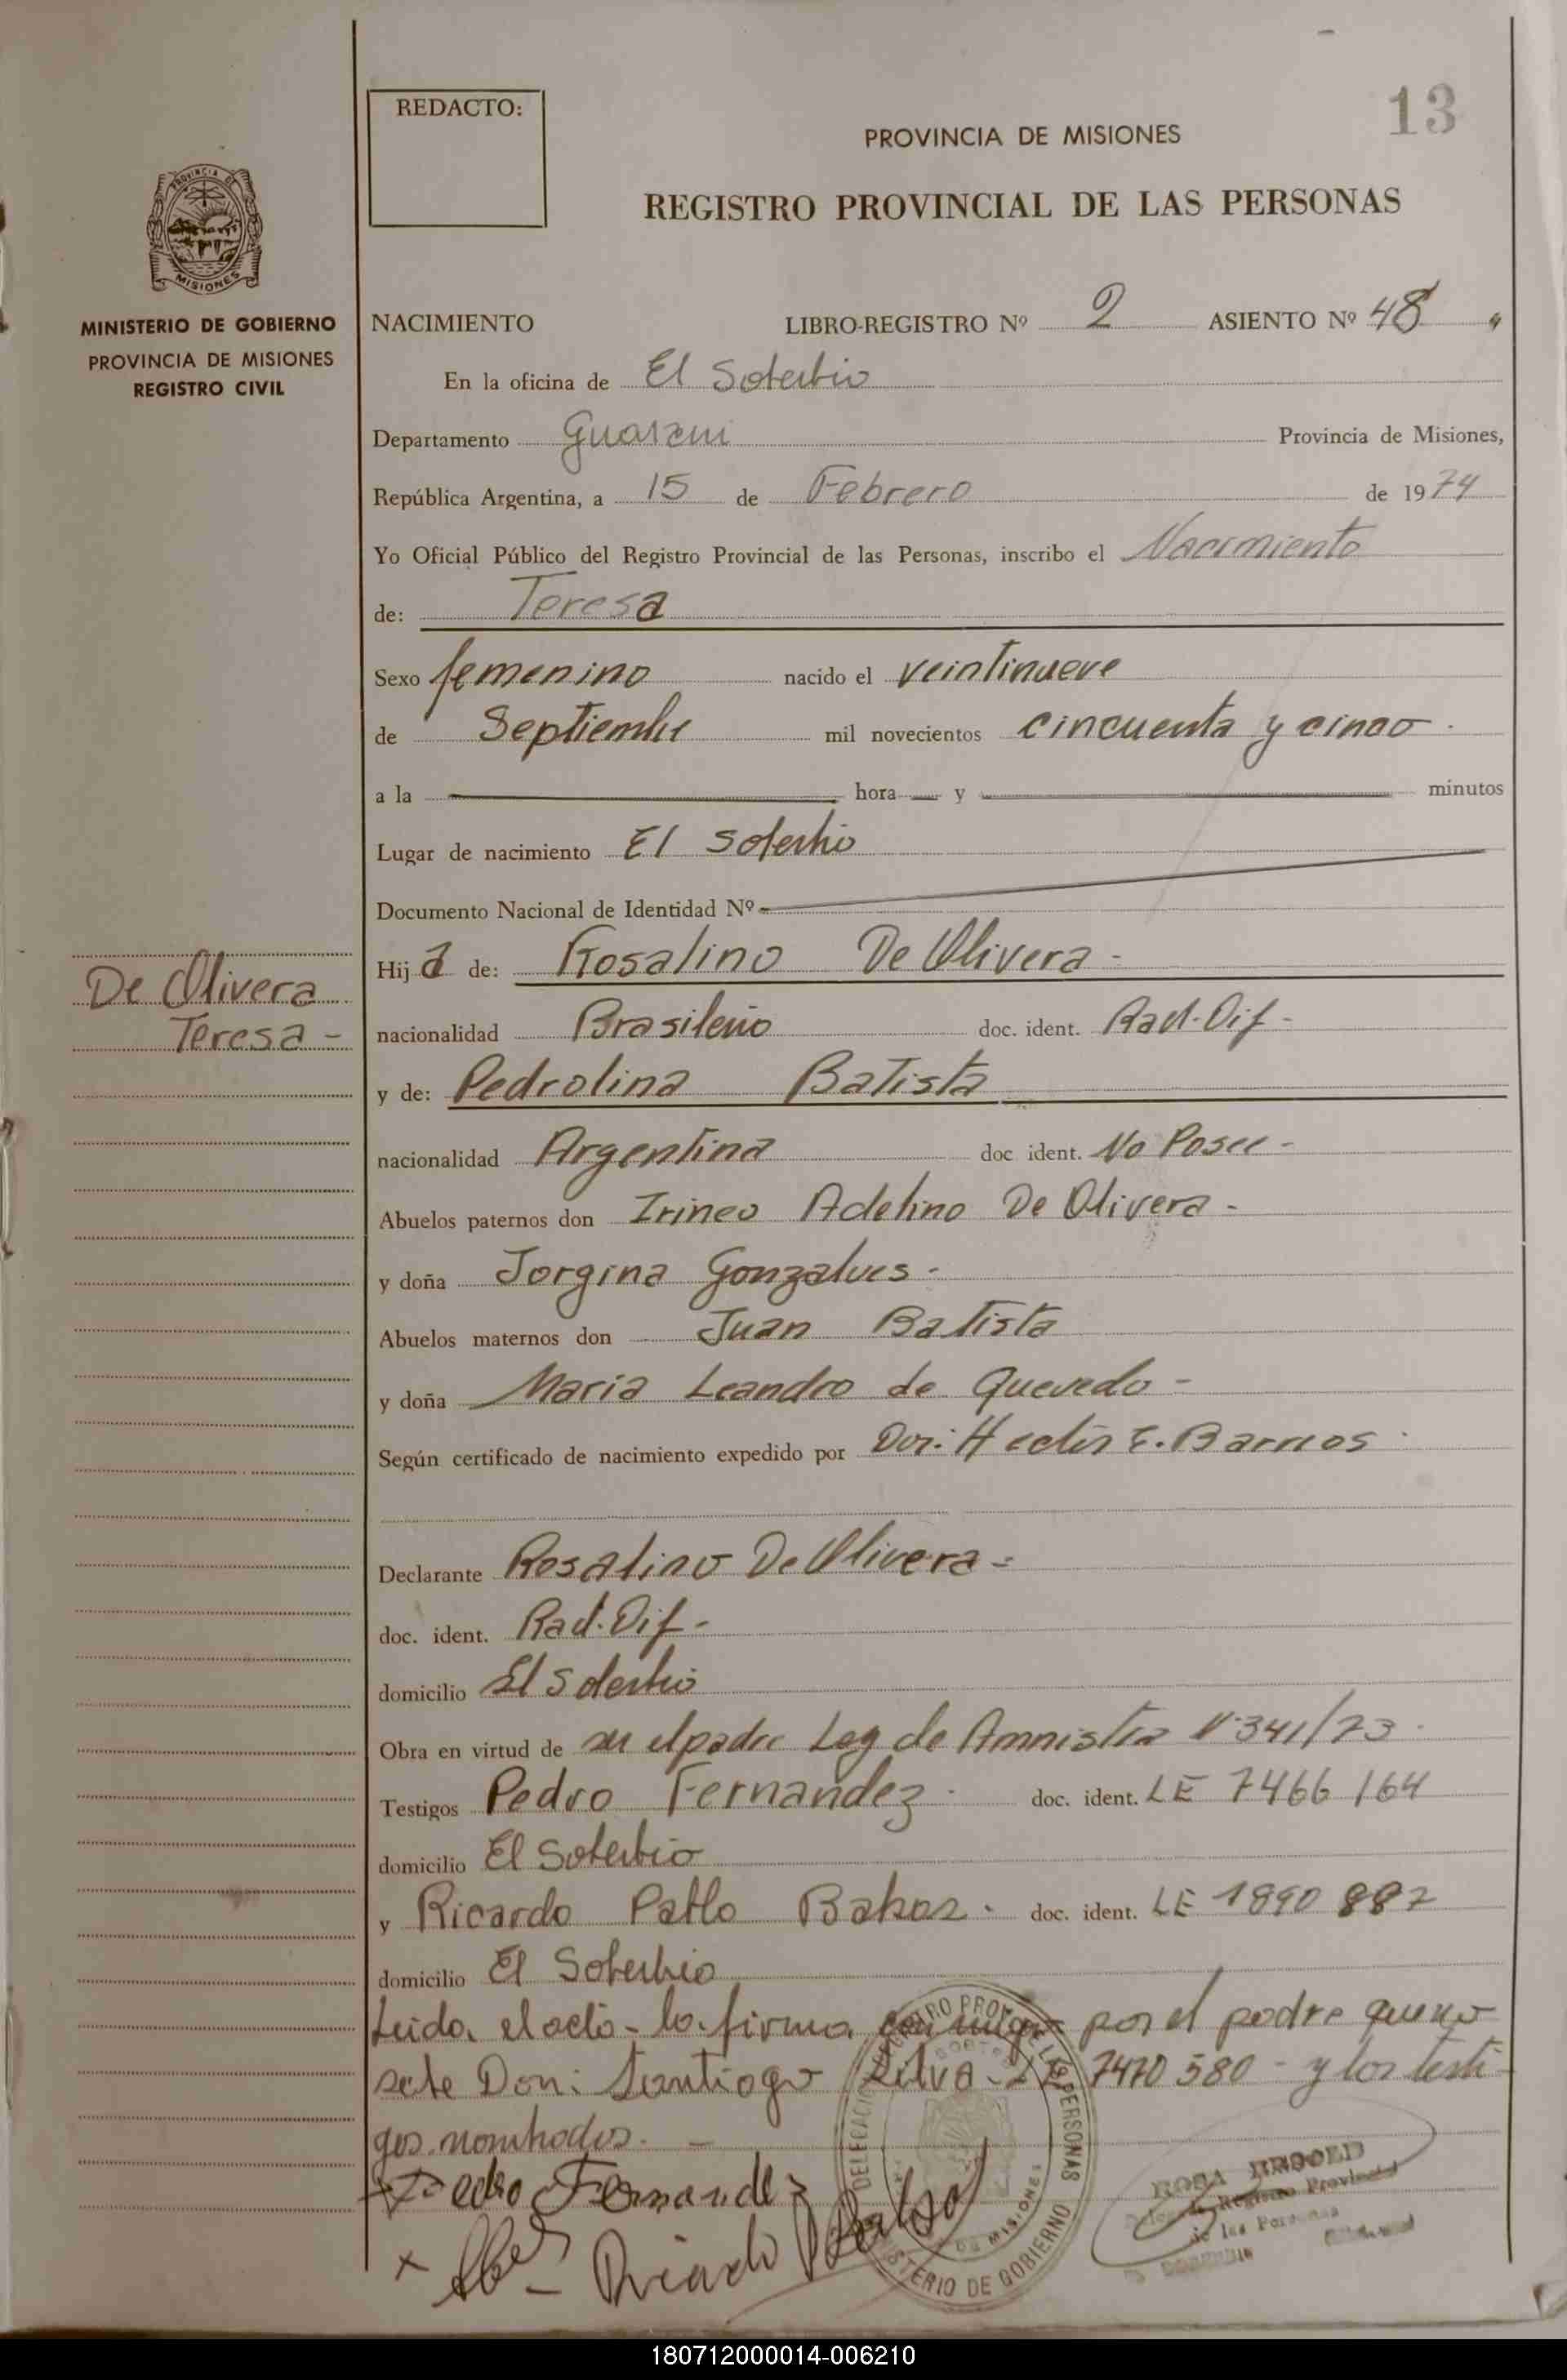 13
REDACTO:
PROVINCIA DE MISIONES
REGISTRO PROVINCIAL DE LAS PERSONAS
PROVINCIA DE
MISIONES
MINISTERIO DE GOBIERNO
PROVINCIA DE MISIONES
REGISTRO CIVIL
NACIMIENTO LIBRO-REGISTRO Nº 2 ASIENTO Nº 48
En la oficina de El Soberbio
Departamento Guarani Provincia de Misiones,
República Argentina, a 15 de Febrero de 1974
Yo Oficial Público del Registro Provincial de las Personas, inscribo el Nacimiento
de: Teresa
Sexo femenino nacido el veintinueve
de Septiembre mil novecientos cincuenta y cinco.
a la hora y minutos
Lugar de nacimiento El Soberbio
Documento Nacional de Identidad Nº
Hija de: Rosalino De Olivera -
De Olivera
Teresa -
nacionalidad Brasileño doc. ident. Rad. Dif -
y de: Pedrolina Batista
nacionalidad Argentina doc ident. No Posee -
Abuelos paternos don Irineo Adelino De Olivera -
y doña Jorgina Gonzalves -
Abuelos maternos don Juan Batista
y doña Maria Leandro de Quevedo -
Según certificado de nacimiento expedido por Dor. Hector E. Barrios
Declarante Rosalino De Olivera -
doc. ident. Rad. Dif -
domicilio El Soberbio
Obra en virtud de ser el padre Ley de Amnistia Nº 341/73
Testigos Pedro Fernandez - doc. ident. LE 7466164
domicilio El Soberbio
y Ricardo Pablo Bakos - doc. ident. LE 1890882
domicilio El Soberbio
Leida el acta - la firma por el padre que no
sabe Don: Santiago Silva - LE 7470580 - y los testi-
gos nombrados. -
Pedro Fernandez
Ricardo
MINISTERIO DE GOBIERNO
MISIONES
Registro Provincial
de las Personas
180712000014-006210